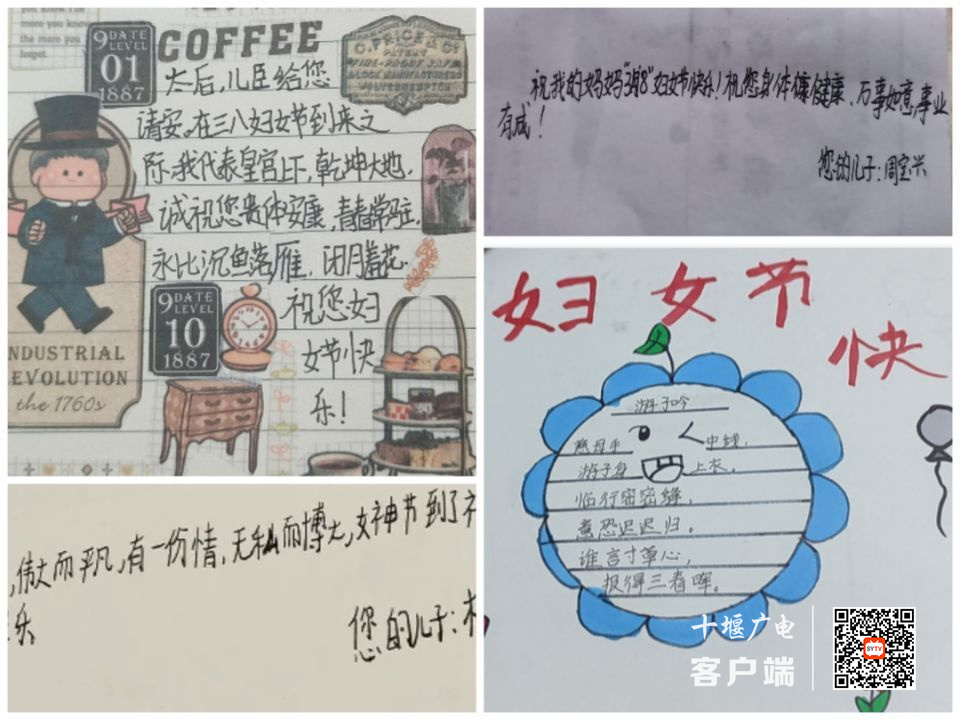 more you know
the more you
forget.
9 DATE
LEVEL
01
1887
COFFEE
C. PRICE & Co
PATENT
FIRE-PROOF SAFE
& LOCK MANUFACTURERS
WOLVERHAMPTON
太后,儿臣给您
请安。在三八妇女节到来之
际,我代表皇宫上下,乾坤大地,
诚祝您贵体安康,青春常驻,
永比沉鱼落雁,闭月羞花.
祝您妇
女节快
乐!
9 DATE
LEVEL
10
1887
NDUSTRIAL
EVOLUTION
the 1760s
祝我的妈妈"3月8"妇女节快乐!祝您身体健康、万事如意,事业
有成!
您的儿子:周宝兴
,伟大而平凡,有一份情,无私而博大,女神节到了
乐
您的儿子:
妇女节
快
游子吟
慈母手 中线,
游子身 上衣。
临行密密缝,
意恐迟迟归。
谁言寸草心,
报得三春晖。
十堰广电
客户端
SYTV